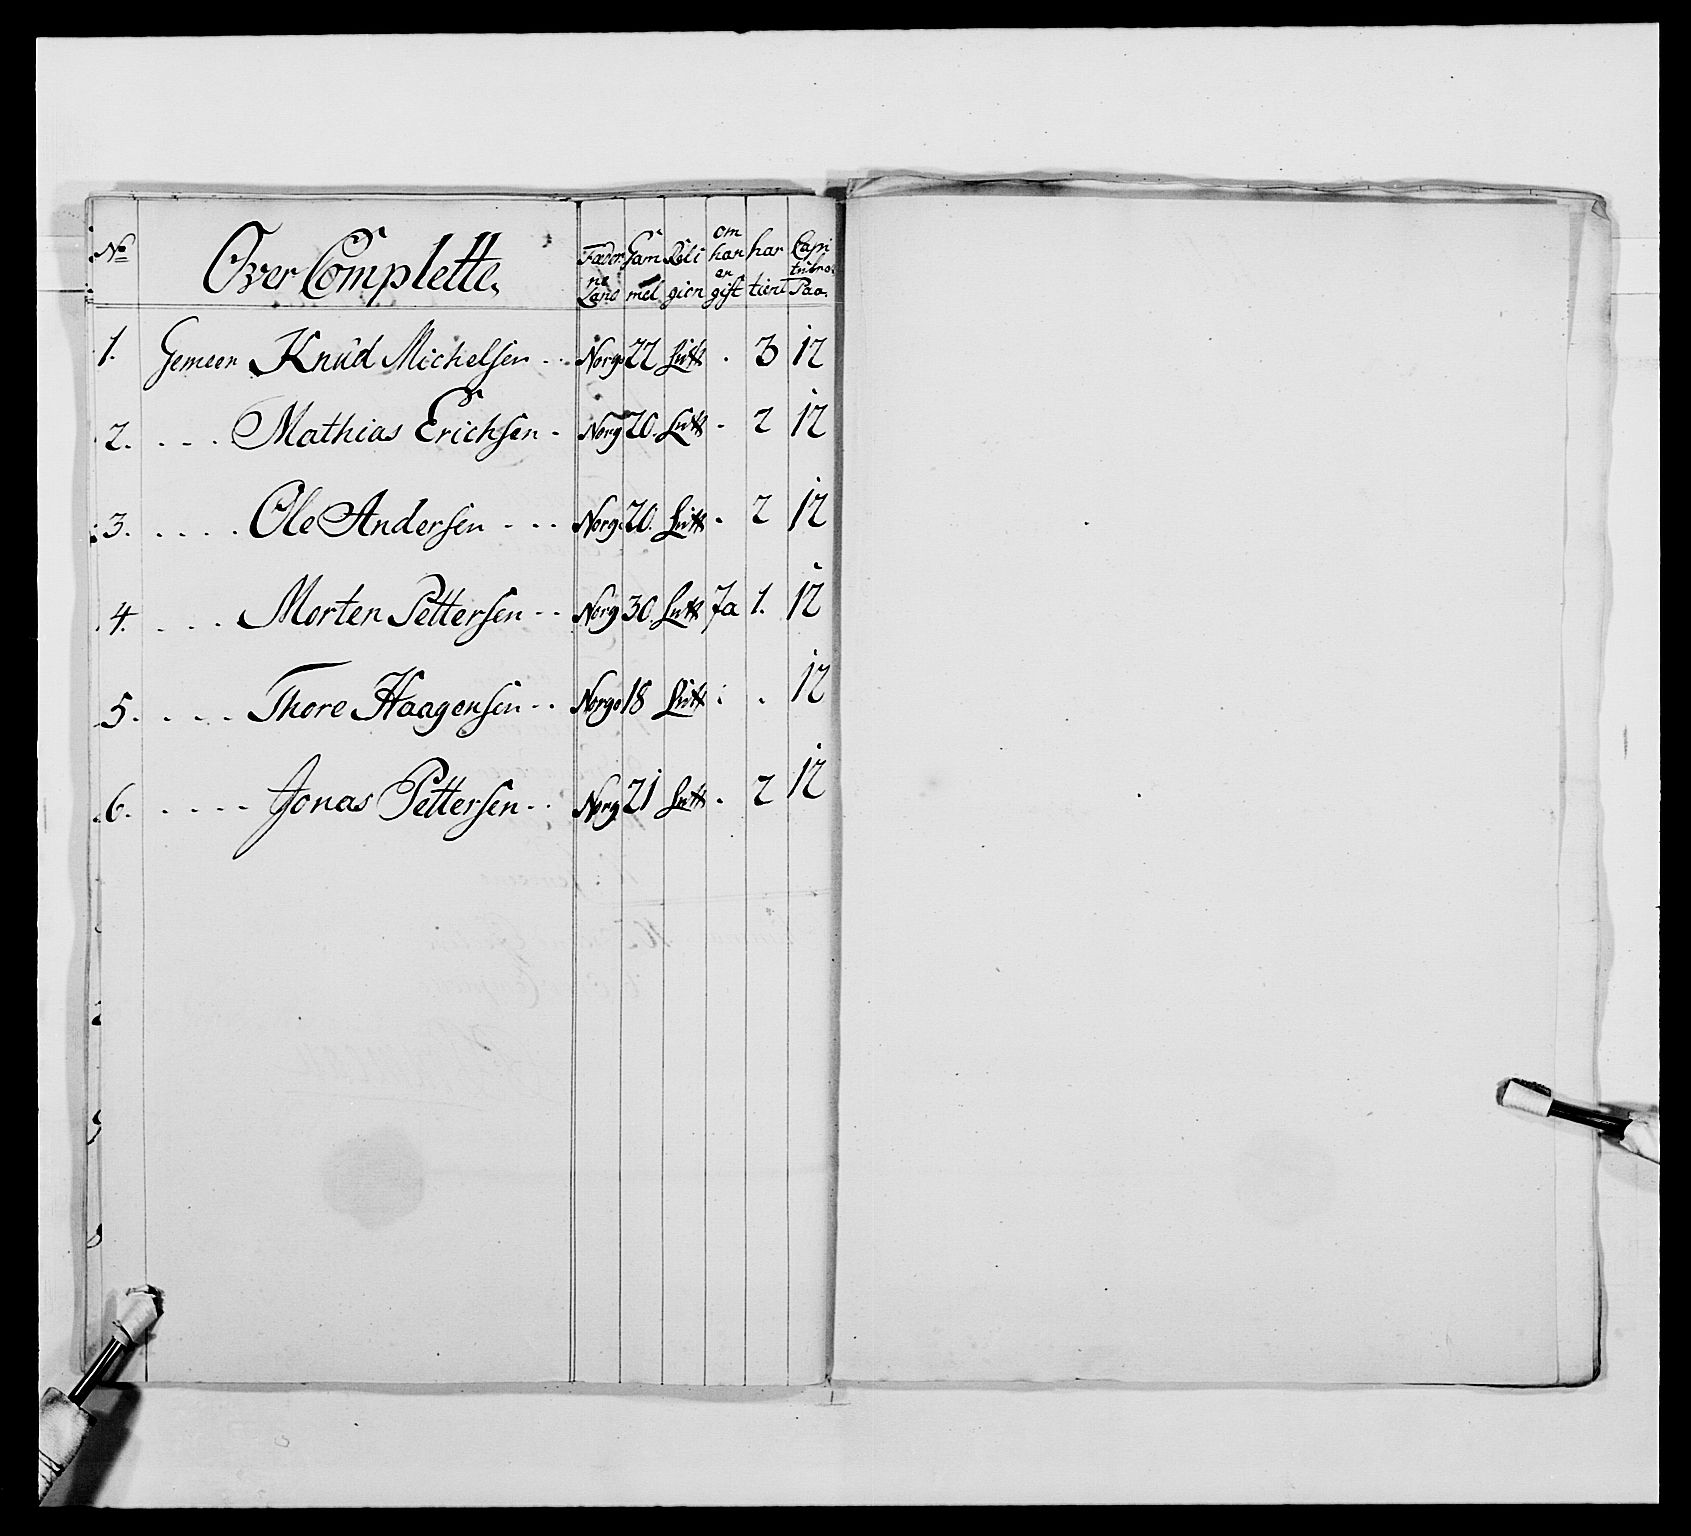 No Over Complette, Fæderne Land Gammel Religion om han er gift har tient Capitulro: Paa,
1. Gemeen Knud Michelsen - - Norge 22 Luth . 3 12
2. - - - Mathias Erichsen - Norg 20. Luth - 2 12
3. - - - - Ole Andersen - - - Norge 20. Luth - 2 12
4. - - - Morten Pettersen - - Norg 30. Luth Ja 1. 12
5. - - - - Thore Haagensen - - Norge 18 Luth : . 12
6. - - - - Jonas Pettersen - - Norg 21 Luth - 2 12